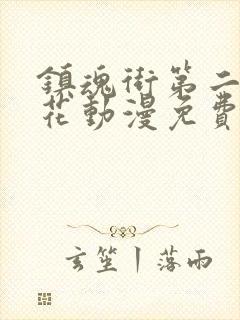 鎮魂街第二
花動漫免費
玄笙丨落雨